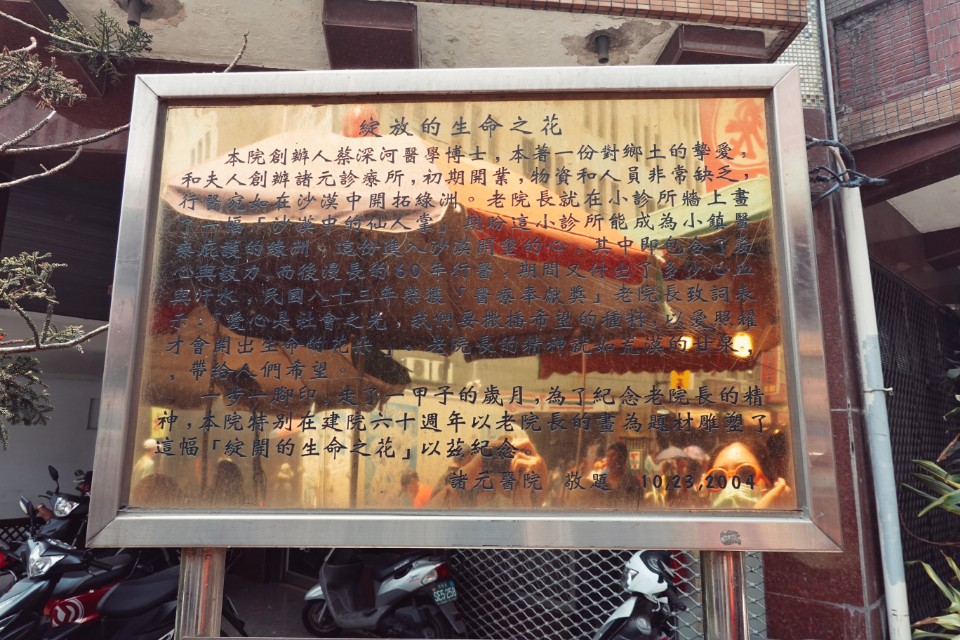 綻放的生命之花
本院創辦人蔡深河醫學博士,本着一份對鄉土的摯愛,
和夫人創辦諸元診療所,初期開業,物資和人員非常缺乏,
行醫宛如在沙漠中開拓綠洲。老院長就在小診所牆上畫
了一幅「沙漠中的仙人掌」期盼這小診所能成為小鎮醫
療庇護的綠洲。這份進入沙漠開墾的心,其中即包含了愛
心與毅力,而後漫長的60年行醫,期間又付出了多少心血
與汗水,民國八十三年榮獲「醫療奉獻獎」老院長致詞表
示:「愛心是社會之光,我們要撒播希望的種籽,以愛照耀
才會開出生命的花朵」。老院長的精神就如荒漠的甘泉,
,帶給人們希望。
一步一腳印,走了一甲子的歲月,為了紀念老院長的精
神,本院特別在建院六十週年以老院長的畫為題材雕塑了
這幅「綻開的生命之花」以茲紀念
諸元醫院 敬題 10,23,2004